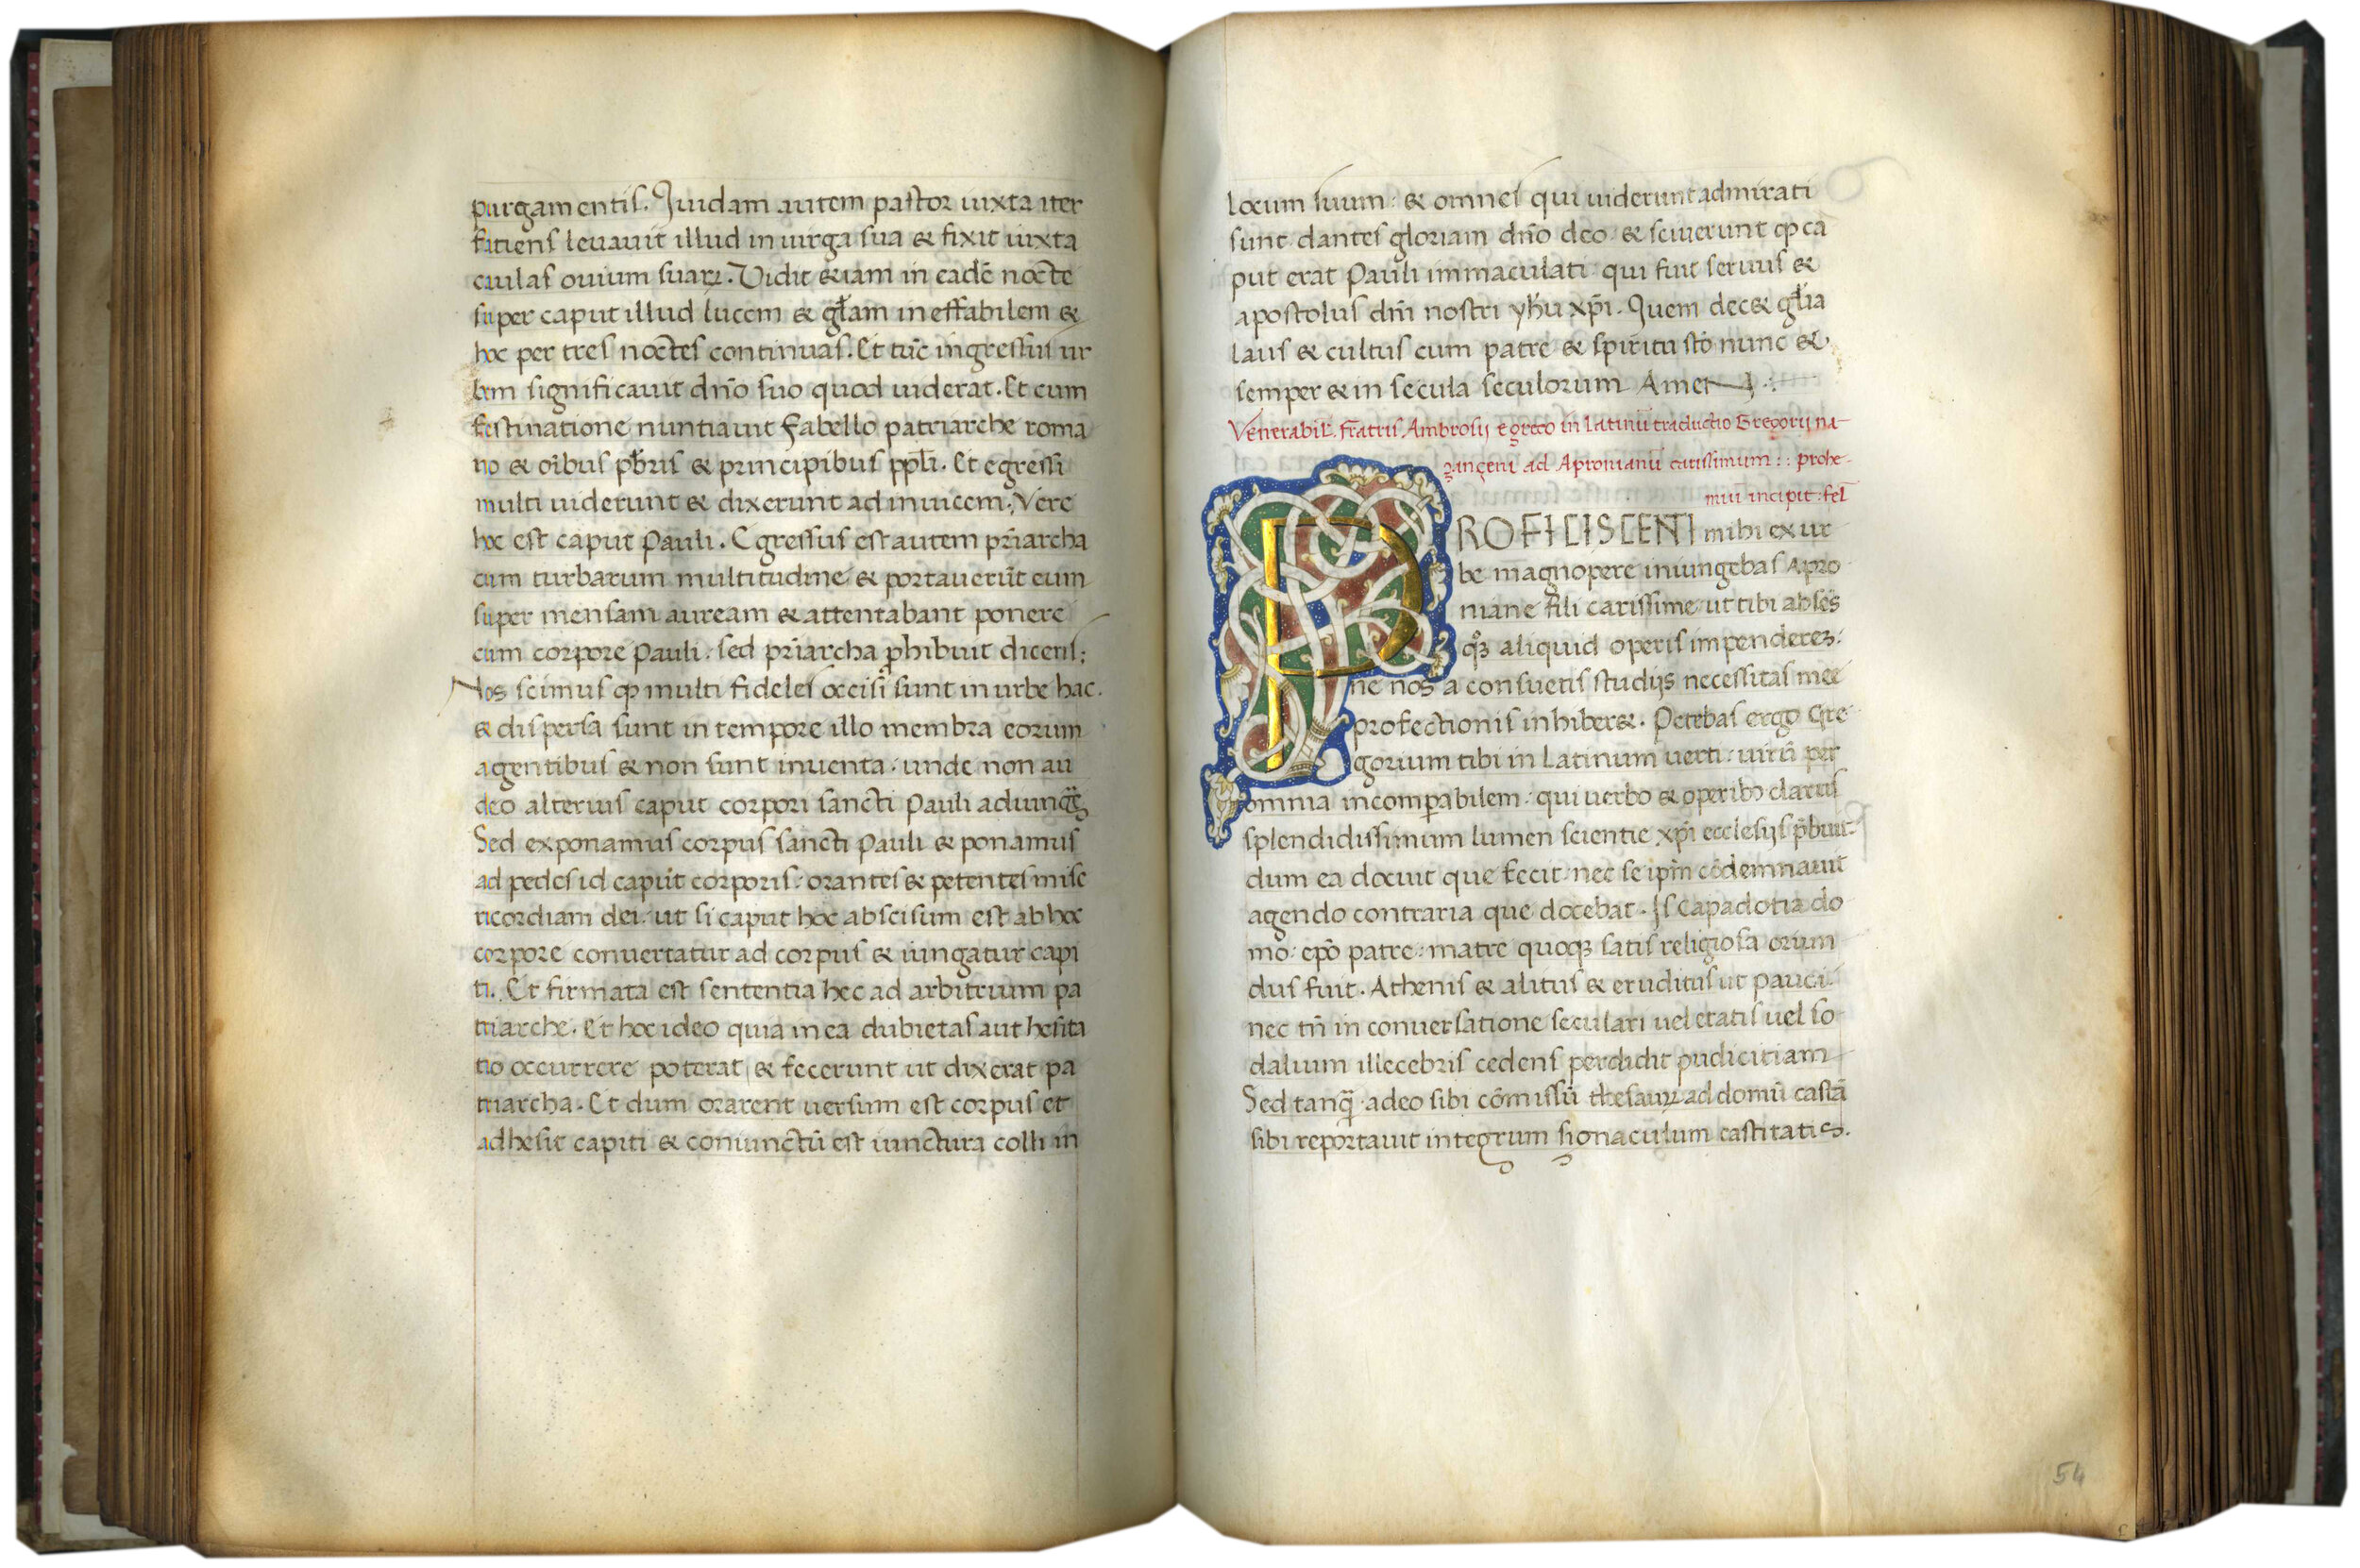 purgamentis. Quidam autem pastor iuxta iter
fatiens leuauit illud in uirga sua & fixit iuxta
cauilas ouium suaꝝ. Vidit &iam in eadē nocte
super caput illud lucem & gl̄am ineffabilem &
hoc per tres noctes continuas. Et tūc ingressus ur
bem significauit dn̄o suo quod uiderat. Et cum
festinatione nuntiauit fabello patriarche roma
no & oībus pb̄ris & principibus ppl̄i. Et egressi
multi uiderunt & dixerunt ad inuicem. Vere
hoc est caput Pauli. Egressus est autem pr̄iarcha
cum turbarum multitudine & portauerūt eum
super mensam auream & attentabant ponere
cum corpore Pauli. sed pr̄iarcha ꝓhibuit dicens;
Nos scimus ꝙ multi fideles occisi sunt in urbe hac.
& dispersa sunt in tempore illo membra eorum
agentibus & non sunt inuenta. unde non au
deo alterius caput corpori sancti Pauli
Sed exponamus corpus sancti Pauli & ponamus
ad pedes id caput corporis. orantes & petentes mise
ricordiam dei. ut si caput hoc abscisum est ab hoc
corpore conuertatur ad corpus & iungatur capi
ti. Et firmata est sententia hec ad arbitrium pa
triarche. Et hoc ideo quia in ea dubietas aut hesita
tio occurrere poterat, & fecerunt ut dixerat pa
triarcha. Et dum orarent uersum est corpus et
adhesit capiti & coniunctū est iunctura colli in
locum suum: & omnes qui uiderunt admirati
sunt dantes gloriam dn̄o deo. & sciuerunt ꝙ ca
put erat Pauli immaculati. qui fuit seruus &
apostolus dn̄i nostri yh̄u xp̄i. Quem dec& gl̄ia
laus & cultus cum patre & spiritu sc̄o nunc &
semper & in secula seculorum Amen.
Venerabil. fratris Ambrosij e greco in latinū traductio Gregorij na-
zanzeni ad Apronianū carissimum: prohe-
miū incipit. fel̄
PROFICISCENTI mihi ex ur
be magnopere iniungebas Apro
niane fili carissime. ut tibi absēs
qͦꝫ aliquid operis impenderez.
ne nos a consuetis studijs necessitas mee
profectionis inhiber&. Petebas ergo Gre
gorium tibi in latinum uerti. uirū per
omnia incomꝑabilem. qui uerbo & operibꝰ clarus
splendidissimum lumen scientie xp̄i ecclesijs p̄buit.
dum ea docuit que fecit. nec se ip̄m cōdemnauit
agendo contraria que docebat. Is Capadotia do
mo. ep̄o patre. matre quoqꝫ satis religiosa oriun
dus fuit. Athenis & alitus & eruditus ut pauci
nec tn̄ in conuersatione seculari uel etatis uel so
dalium illecebris cedens perdidit pudicitiam
Sed tanq̄ adeo sibi cōmissū thesauꝝ ad domū castā
sibi reportauit integrum signaculum castitatis.
54